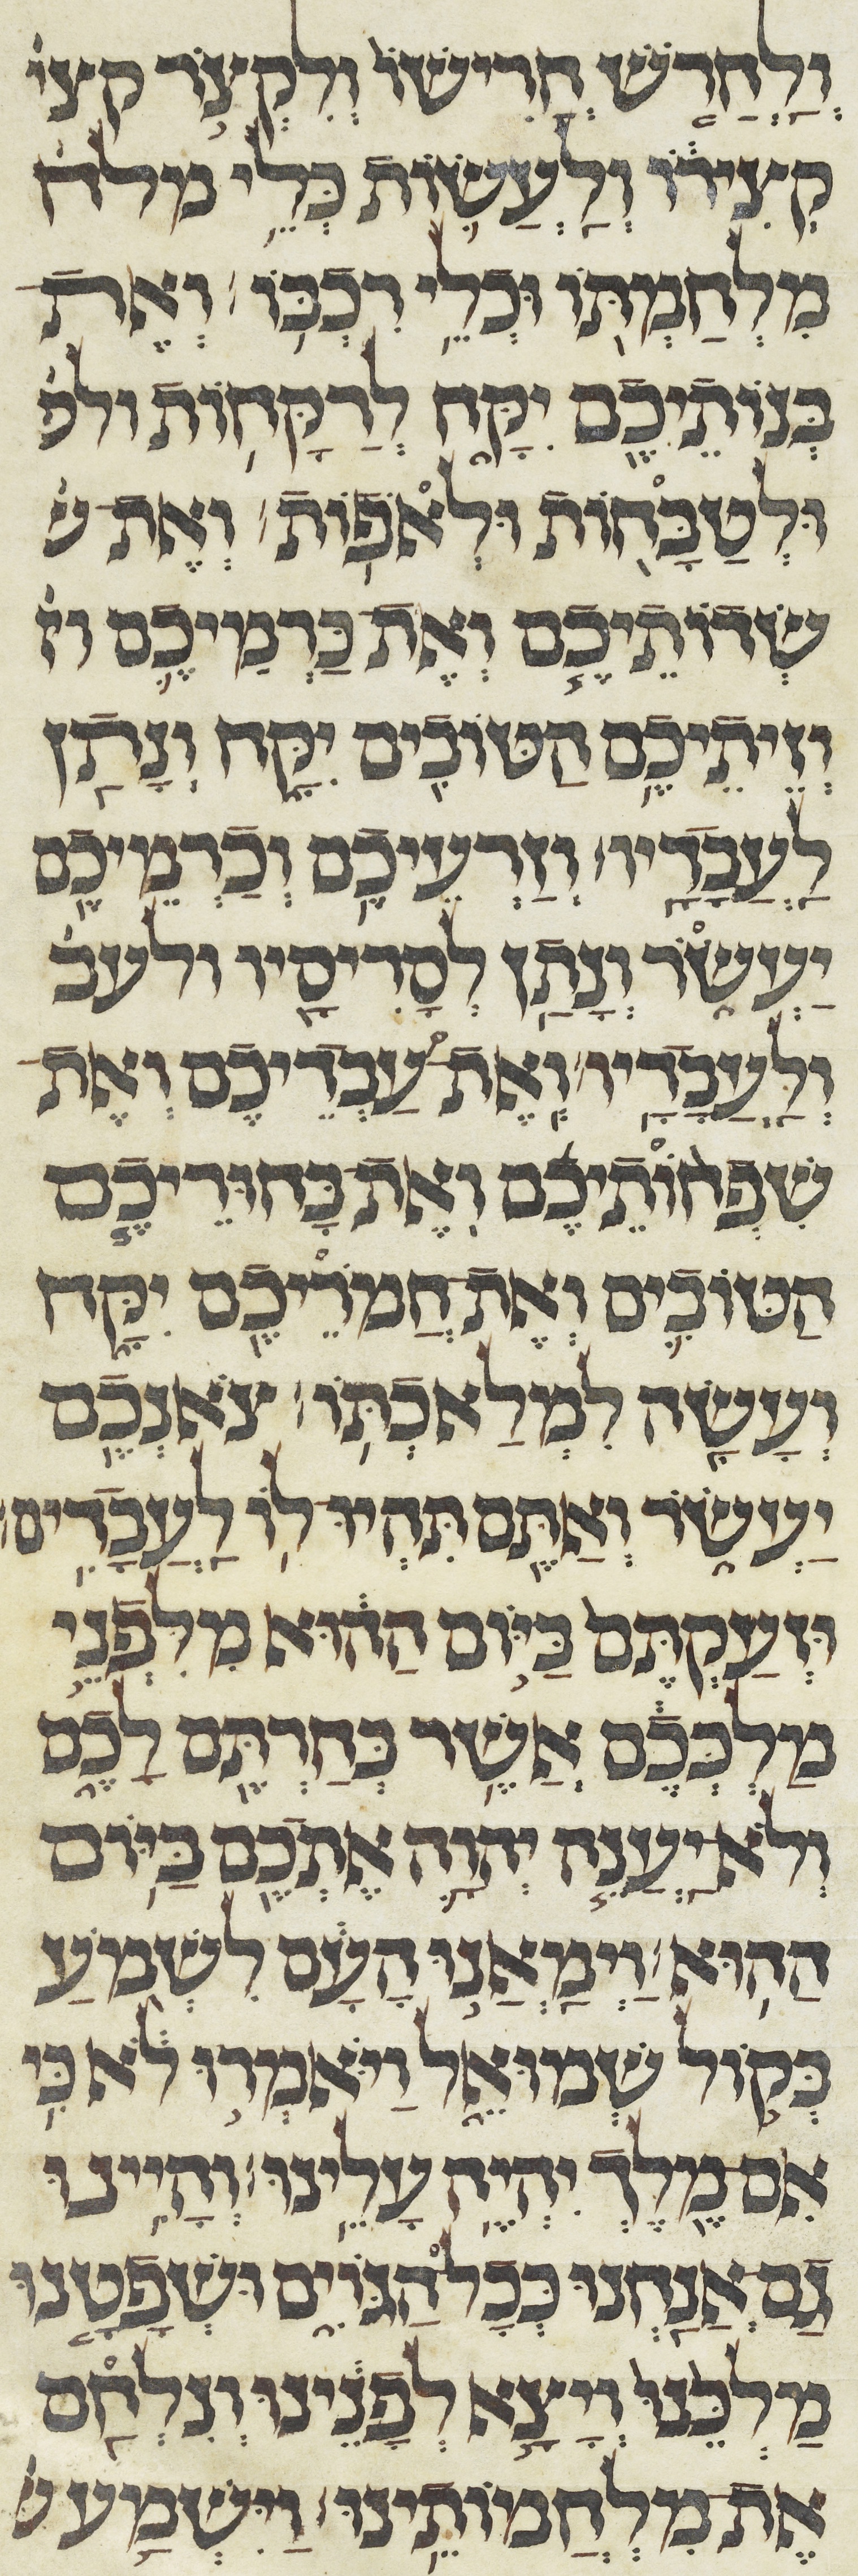 וְלַחֲרֹ֤שׁ חֲרִישׁוֹ֙ וְלִקְצֹ֣ר קצי
קְצִיר֔וֹ וְלַעֲשׂ֥וֹת כְּלֵֽי מלח
מִלְחַמְתּ֖וֹ וּכְלֵ֥י רִכְבּֽוֹ׃ וְאֶת
בְּנוֹתֵיכֶ֖ם יִקָּ֑ח לְרַקָּח֥וֹת ולט
וּלְטַבָּח֖וֹת וּלְאֹפֽוֹת׃ וְאֶת ש
שְׂדוֹתֵיכֶ֞ם וְאֶת כַּרְמֵיכֶ֧ם וז
וְזֵיתֵיכֶ֛ם הַטּוֹבִ֖ים יִקָּ֑ח וְנָתַ֖ן
לַעֲבָדָֽיו׃ וְזַרְעֵיכֶ֥ם וְכַרְמֵיכֶ֖ם
יַעְשֹׂ֑ר וְנָתַ֥ן לְסָרִיסָ֖יו ולעב
וְלַעֲבָדָֽיו׃ וְאֶת עַבְדֵיכֶם֩ וְאֶת
שִׁפְח֨וֹתֵיכֶ֜ם וְאֶת בַּחוּרֵיכֶ֧ם
הַטּוֹבִ֛ים וְאֶת חֲמֹרֵיכֶ֖ם יִקָּ֑ח
וְעָשָׂ֖ה לִמְלַאכְתּֽוֹ׃ צֹאנְכֶ֖ם
יַעְשֹׂ֑ר וְאַתֶּ֖ם תִּהְיוּ ל֥וֹ לַעֲבָדִֽים׃
וּזְעַקְתֶּם֙ בַּיּ֣וֹם הַה֔וּא מִלִּפְנֵ֣י
מַלְכְּכֶ֔ם אֲשֶׁ֥ר בְּחַרְתֶּ֖ם לָכֶ֑ם
וְלֹא יַעֲנֶ֧ה יְהוָ֛ה אֶתְכֶ֖ם בַּיּ֥וֹם
הַהֽוּא׃ וַיְמָאֲנ֣וּ הָעָ֔ם לִשְׁמֹ֖עַ
בְּק֣וֹל שְׁמוּאֵ֑ל וַיֹּאמְר֣וּ לֹּ֔א כִּ֥י
אִם מֶ֖לֶךְ יִֽהְיֶ֥ה עָלֵֽינוּ׃ וְהָיִ֥ינוּ
גַם אֲנַ֖חְנוּ כְּכָל הַגּוֹיִ֑ם וּשְׁפָטָ֤נוּ
מַלְכֵּ֙נוּ֙ וְיָצָ֣א לְפָנֵ֔ינוּ וְנִלְחַ֖ם
אֶת מִלְחֲמוֹתֵֽינוּ׃ וַיִּשְׁמַ֣ע ש